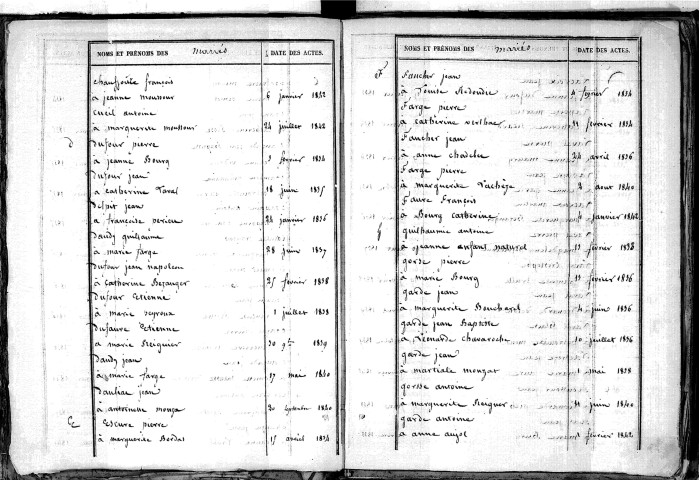 NOMS ET PRÉNOMS DES Mariés DATE DES ACTES.
chauffoüte françois
à jeanne moussour 6 janvier 1842
Cueil antoine
à marguerite moussour 24 juillet 1842
D
Dufour pierre
à jeanne Bourg 3 février 1834
Dufour jean
à catherine Laval 18 juin 1835
Delpit jean
à françoise perieu 24 janvier 1836
Daudy guillaume
à marie farge 28 juin 1837
Dufour jean napoleon
à catherine Bezanger 25 fevrier 1838
Dufour Etienne
à marie Peyroux 1 juillet 1838
Dufaure Etienne
à marie Reignier 30 9bre 1839
Daudy jean
à marie farge 17 mai 1840
Dauliac jean
à antoinette mouza 20 septembre 1840
E
Escure pierre
à marguerite Bordas 15 avril 1834
NOMS ET PRÉNOMS DES Mariés DATE DES ACTES.
F
Faucher jean
à Louise Redoudie 4 fevrier 1834
Farge pierre
à catherine verlhac 11 fevrier 1834
Faucher jean
à anne chadelie 24 avril 1836
Farge pierre
à marguerite Lachèze 2 aout 1840
Faure François
à Bourg catherine 4 janvier 1842
G
guilhaumie antoine
à jeanne enfant naturel 13 fevrier 1838
gorse pierre
à marie Bourg 13 fevrier 1836
garde jean
à marguerite Boucharel 4 juin 1836
garde jean Baptiste
à Léonarde chavaroche 10 juillet 1836
garde jean
à martiale mouzat 1 mai 1838
gorse antoine
à marguerite Reiguer 11 juin 1840
garde antoine
à anne aujol 1 fevrier 1842